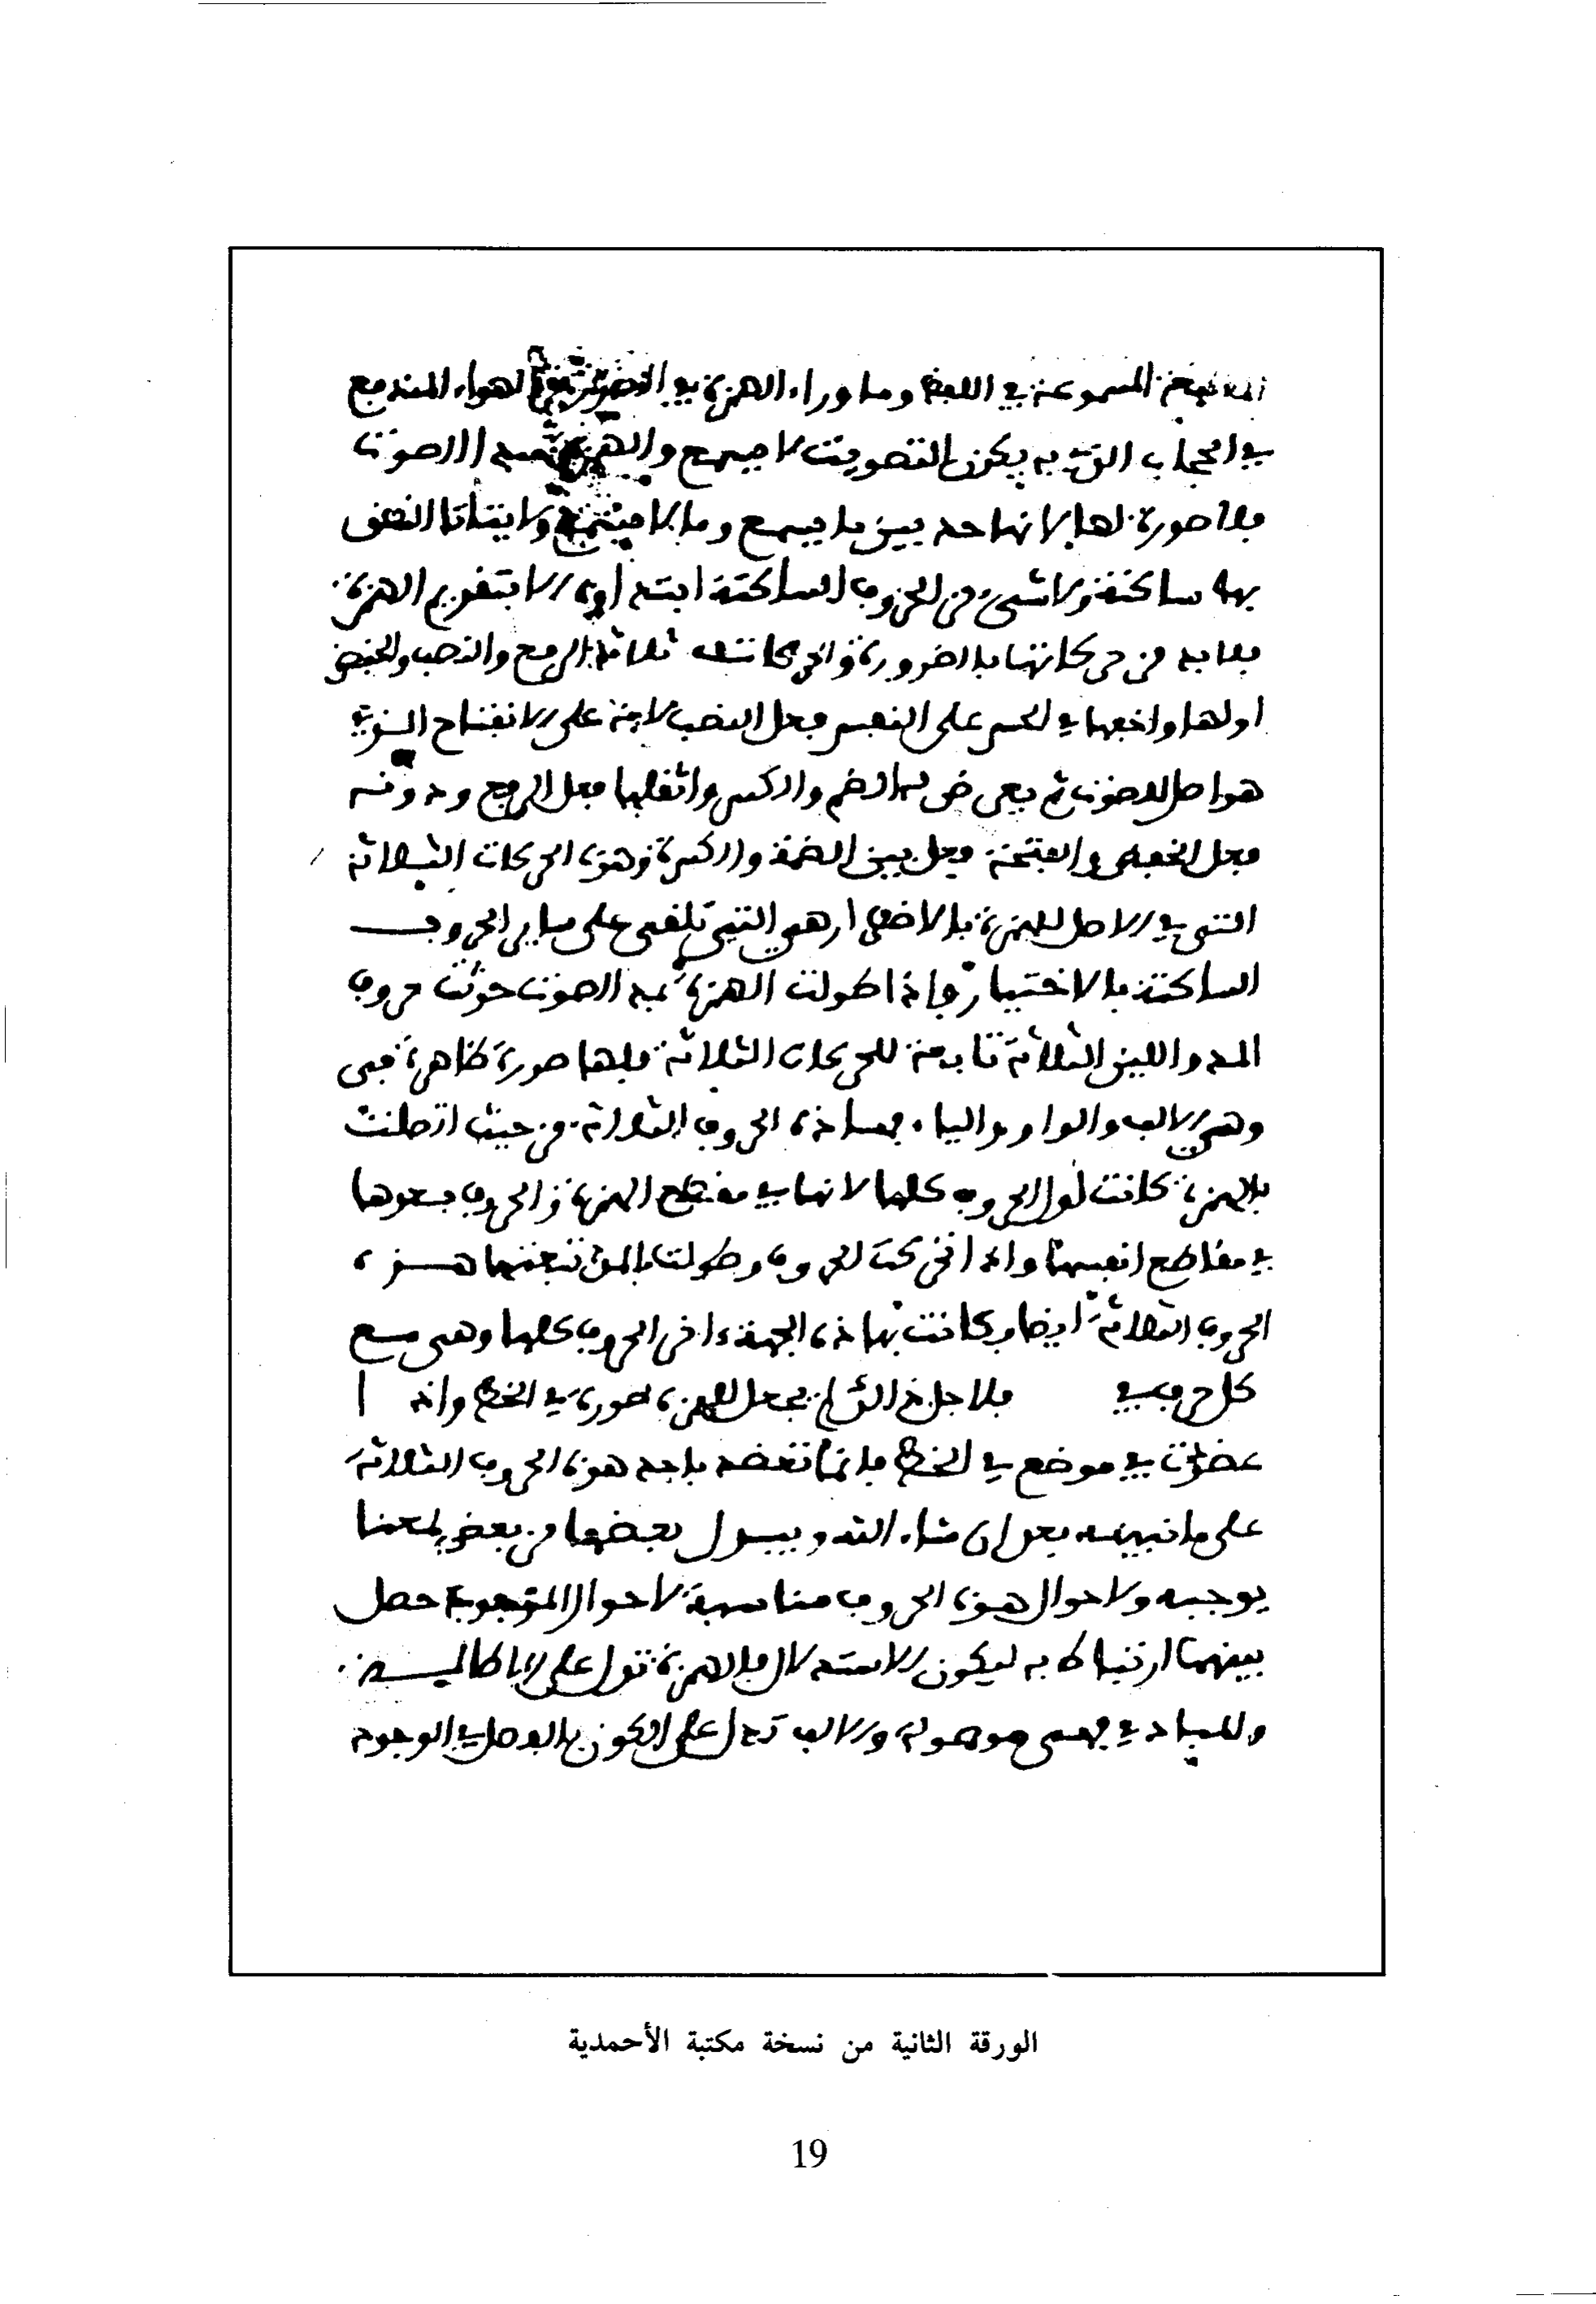 المسموعة في اللفظ وما وراء الهمزة في الهواء المندفع
في الحجاب الذي به يكون التصويت لا يسمع والهمزة الصوت
فلا صورة لها لانها حد بين ما يسمع وما لا يسمع ولا يتأتا النطق
بها ساكنة ولا شيء من الحروف الساكنة ابتداء الا بتقديم الهمزة
فلا بد من حركاتها بالضرورة والحركات ثلاثة الرفع والنصب والخفض
اولها واخفها في الحس على النفس فعل النصب لانه على الانفتاح الذي
هو اصل للصوت ثم يعرض لها الضم والكسر واثقلها فعل الرفع ودونه
فعل الخفض والفتحة فعل بين الضمة والكسرة وهذه الحركات الثلاثة
التي في الاصل للهمزة بالاضطرار هي التي تلقى على ساير الحروف
الساكنة بالاختيار واذا طولت الهمزة بمد الصوت حدثت حروف
المد واللين الثلاثة تابعة للحركات الثلاثة فلها صورة ظاهرة
وهي الالف والواو والياء فهاذه الحروف الثلاثة من حيث اتصلت
بالهمزة كانت اول الحروف كلها لانها في مقطع الهمزة والحروف بعدها
في مقاطع انفسها واذا تحركت الحروف وطولت بالمد تبعتها هذه
الحروف الثلاثة ايضا فكانت بهاذه الجهة ءاخر الحروف كلها وهي مع
كل حرف في فلاجل ذالك لم يجعل للهمزة صورة في الخط واذا
عضدت في موضع في الخط فانما تعضد باحد هذه الحروف الثلاثة
على ما نبينه بعد ان شاء الله ويبدل بعضها من بعض لمعنا
يوجبه ولاحوال هذه الحروف مناسبة لاحوال الموجود حصل
بينهما ارتباط به ليكون الاستدلال فالهمزة تدل على الاصالة
والمبادي فهي موصولة والالف تدل على الكون بالفعل في الوجود
الورقة الثانية من نسخة مكتبة الأحمدية
19